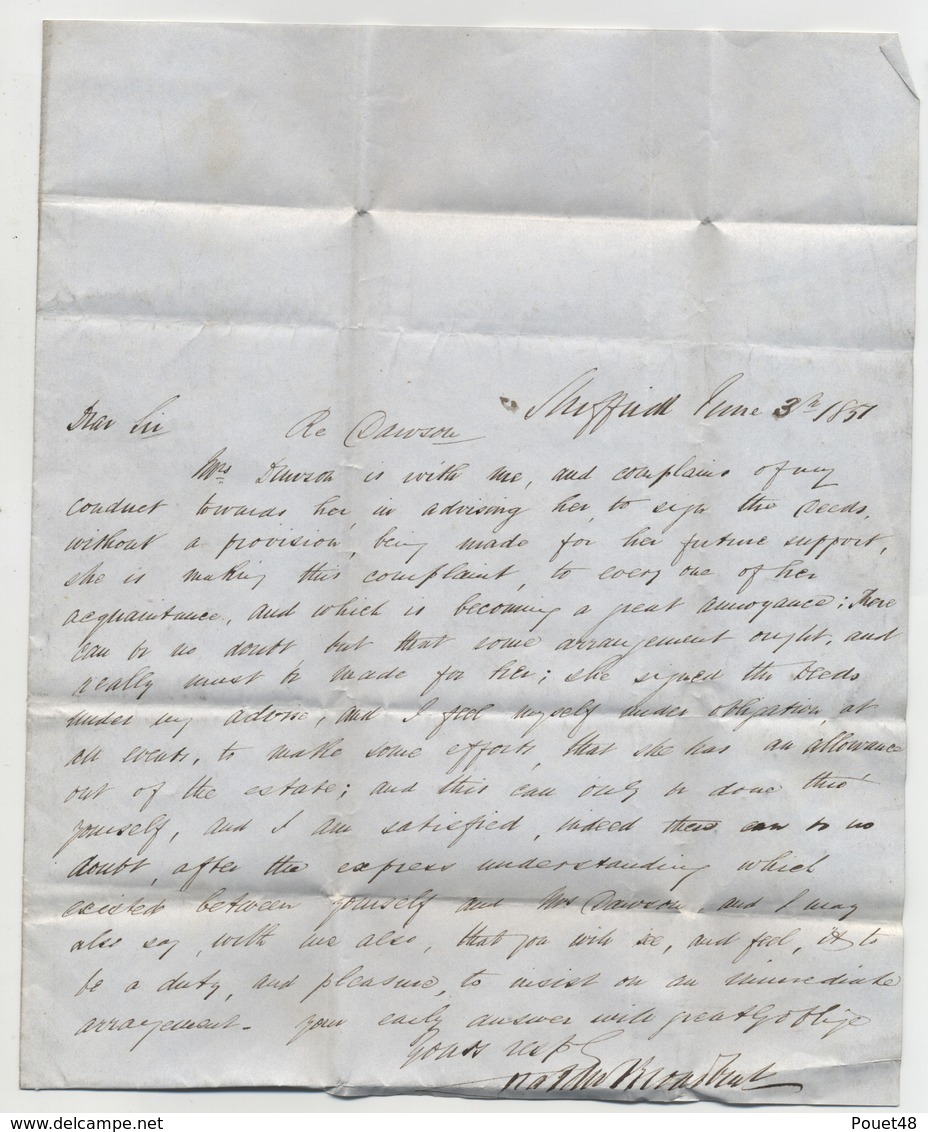 Sheffield June 3rd 1851
Dear Sir
Re Dawson
Mrs Dawson is with me, and complains of my
conduct towards her, in advising her, to sign the Deeds,
without a provision, being made for her future support,
she is making this complaint, to every one of her
acquaintance, and which is becoming a great annoyance; There
can be no doubt but that some arrangement ought, and
really must be made for her; she signed the Deeds
under my advice, and I feel myself under obligation, at
all events, to make some efforts, that she has an allowance
out of the estate; and this can only be done thro'
yourself, and I am satisfied, indeed there can be no
doubt, after the express understanding which
existed between yourself and Mrs Dawson, and I may
also say, with me also, that you will see, and feel, it to
be a duty, and pleasure, to insist on an immediate
arrangement - your early answer will greatly oblige
Yours respy
Broadbent
delcampe.net
Pouet48